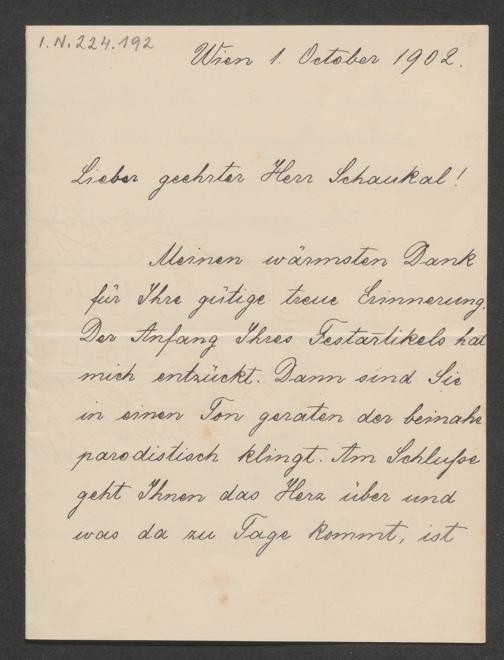 I.N. 224.192
Wien 1. October 1902.
Lieber geehrter Herr Schaukal!
Meinen wärmsten Dank
für Ihre gütige treue Erinnerung.
Der Anfang Ihres Festartikels hat
mich entzückt. Dann sind Sie
in einen Ton geraten der beinahe
parodistisch klingt. Am Schluſse
geht Ihnen das Herz über und
was da zu Tage kommt, ist